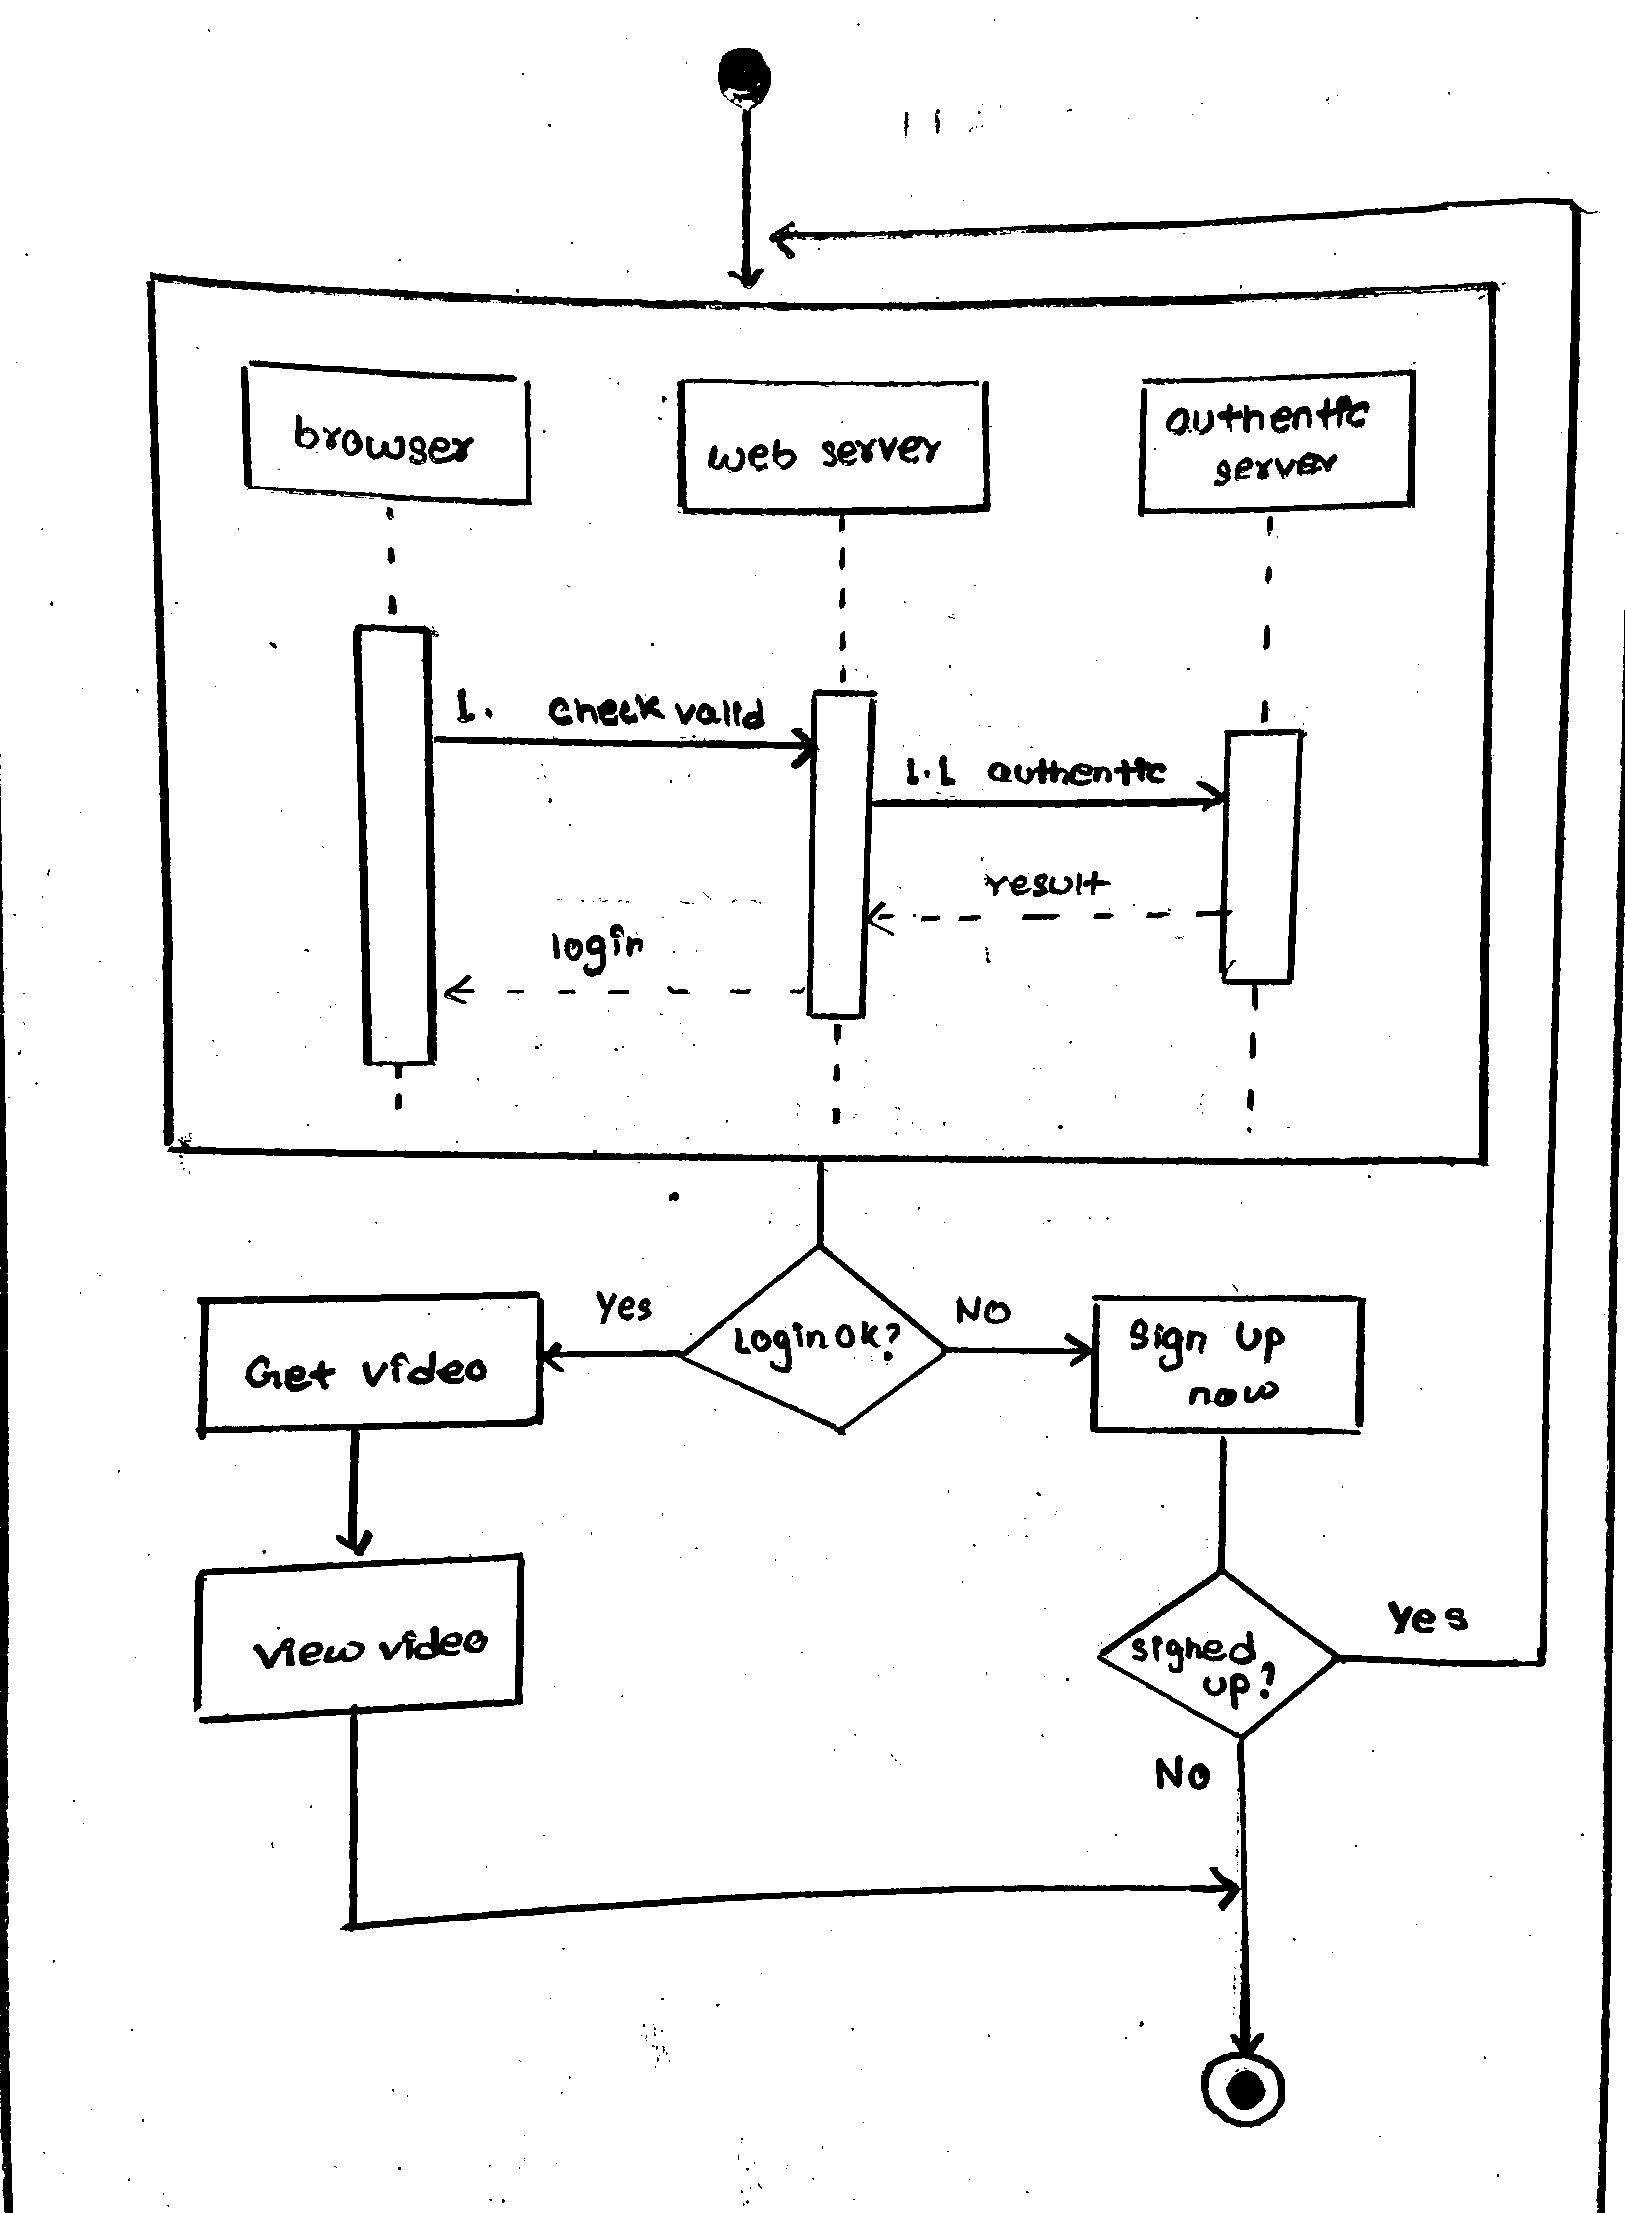 browser
web server
authentic
server
1. check valid
1.1 authentic
result
login
Yes
Login ok?
NO
Get video
Sign Up
now
view video
signed
up?
Yes
No